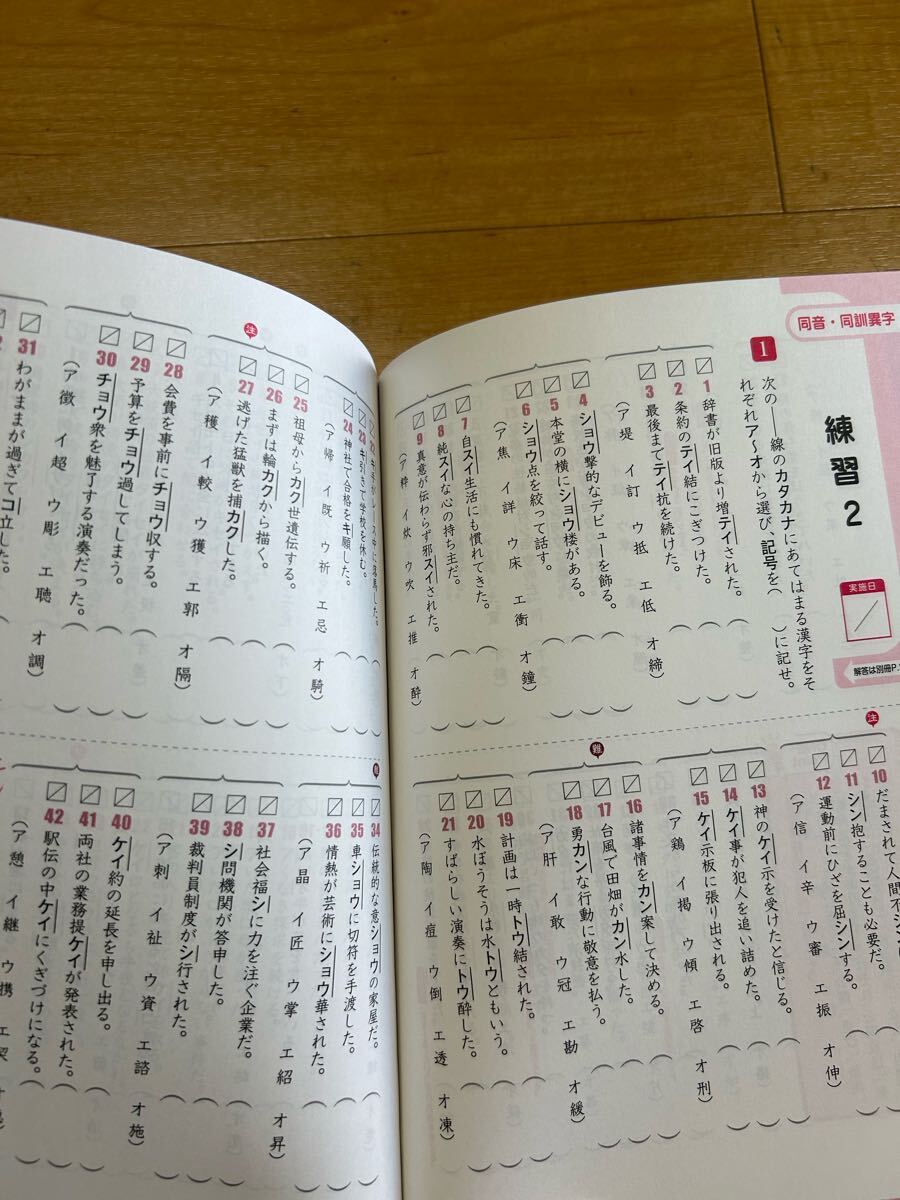 同音・同訓異字
練習2
実施日
解答は別冊P.
1
次の――線のカタカナにあてはまる漢字をそれぞれア〜オから選び、記号を(　)に記せ。
1 辞書が旧版より増テイされた。
2 条約のテイ結にこぎつけた。
3 最後までテイ抗を続けた。
(ア 堤 イ 訂 ウ 抵 エ 低 オ 締)
4 ショウ撃的なデビューを飾る。
5 本堂の横にショウ楼がある。
6 ショウ点を絞って話す。
(ア 焦 イ 詳 ウ 床 エ 衝 オ 鐘)
7 自スイ生活にも慣れてきた。
8 純スイな心の持ち主だ。
9 真意が伝わらず邪スイされた。
(ア 粋 イ 炊 ウ 吹 エ 推 オ 酔)
注
10 だまされて人間不シン
11 シン抱することも必要だ。
12 運動前にひざを屈シンする。
(ア 信 イ 辛 ウ 審 エ 振 オ 伸)
13 神のケイ示を受けたと信じる。
14 ケイ事が犯人を追い詰めた。
15 ケイ示板に張り出される。
(ア 鶏 イ 掲 ウ 傾 エ 啓 オ 刑)
難
16 諸事情をカン案して決める。
17 台風で田畑がカン水した。
18 勇カンな行動に敬意を払う。
(ア 肝 イ 敢 ウ 冠 エ 勘 オ 緩)
19 計画は一時トウ結された。
20 水ぼうそうは水トウともいう。
21 すばらしい演奏にトウ酔した。
(ア 陶 イ 痘 ウ 倒 エ 透 オ 凍)
23 キ引きで学校を休む。
24 神社で合格をキ願した。
(ア 帰 イ 既 ウ 祈 エ 忌 オ 騎)
注
25 祖母からカク世遺伝する。
26 まずは輪カクから描く。
27 逃げた猛獣を捕カクした。
(ア 穫 イ 較 ウ 獲 エ 郭 オ 隔)
28 会費を事前にチョウ収する。
29 予算をチョウ過してしまう。
30 チョウ衆を魅了する演奏だった。
(ア 徴 イ 超 ウ 彫 エ 聴 オ 調)
31 わがままが過ぎてコ立した。
34 伝統的な意ショウの家屋だ。
35 車ショウに切符を手渡した。
36 情熱が芸術にショウ華された。
(ア 晶 イ 匠 ウ 掌 エ 紹 オ 昇)
37 社会福シに力を注ぐ企業だ。
38 シ問機関が答申した。
39 裁判員制度がシ行された。
(ア 刺 イ 祉 ウ 資 エ 諮 オ 施)
40 ケイ約の延長を申し出る。
41 両社の業務提ケイが発表された。
42 駅伝の中ケイにくぎづけになる。
(ア 憩 イ 継 ウ 携 エ 契 オ